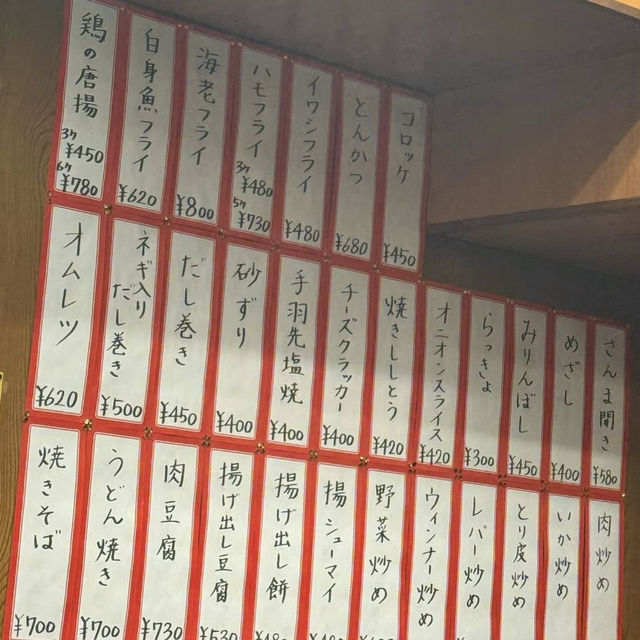 コロッケ ¥450
とんかつ ¥680
イワシフライ ¥480
ハモフライ 3ケ ¥480 5ケ ¥730
海老フライ ¥800
白身魚フライ ¥620
鶏の唐揚 3ケ ¥450 6ケ ¥780
さんま開き ¥580
めざし ¥400
みりんぼし ¥450
らっきょ ¥300
オニオンスライス ¥420
焼きししとう ¥420
チーズクラッカー ¥400
手羽先塩焼 ¥400
砂ずり ¥400
だし巻き ¥450
ネギ入りだし巻き ¥500
オムレツ ¥620
肉炒め
いか炒め
とり皮炒め
レバー炒め
ウィンナー炒め
野菜炒め
揚シューマイ
揚げ出し餅
揚げ出し豆腐 ¥530
肉豆腐 ¥730
うどん焼き ¥700
焼きそば ¥700